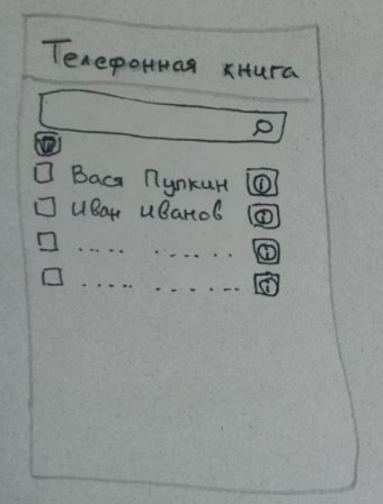 Телефонная книга
Вася Пупкин
Иван Иванов
..... ......
..... .......